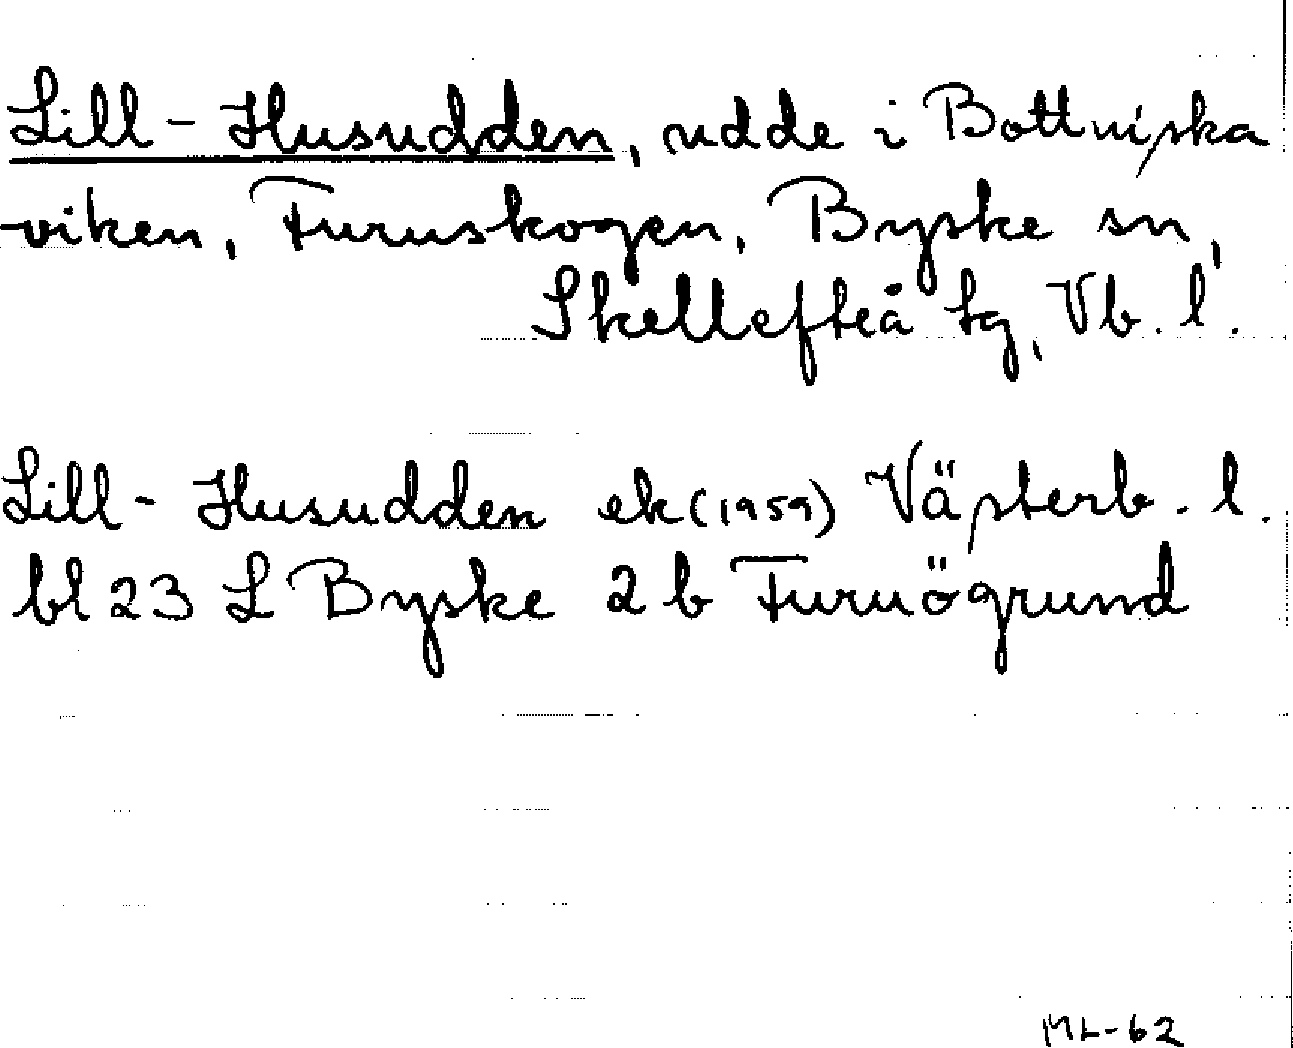 Lill-Husudden, udde i Bottniska
viken, Furuskogen, Byske sn,
Skellefteå tg, Vb. l.
Lill-Husudden ek (1959) Västerb. l.
bl 23 L Byske 2 b Furuögrund
ML-62